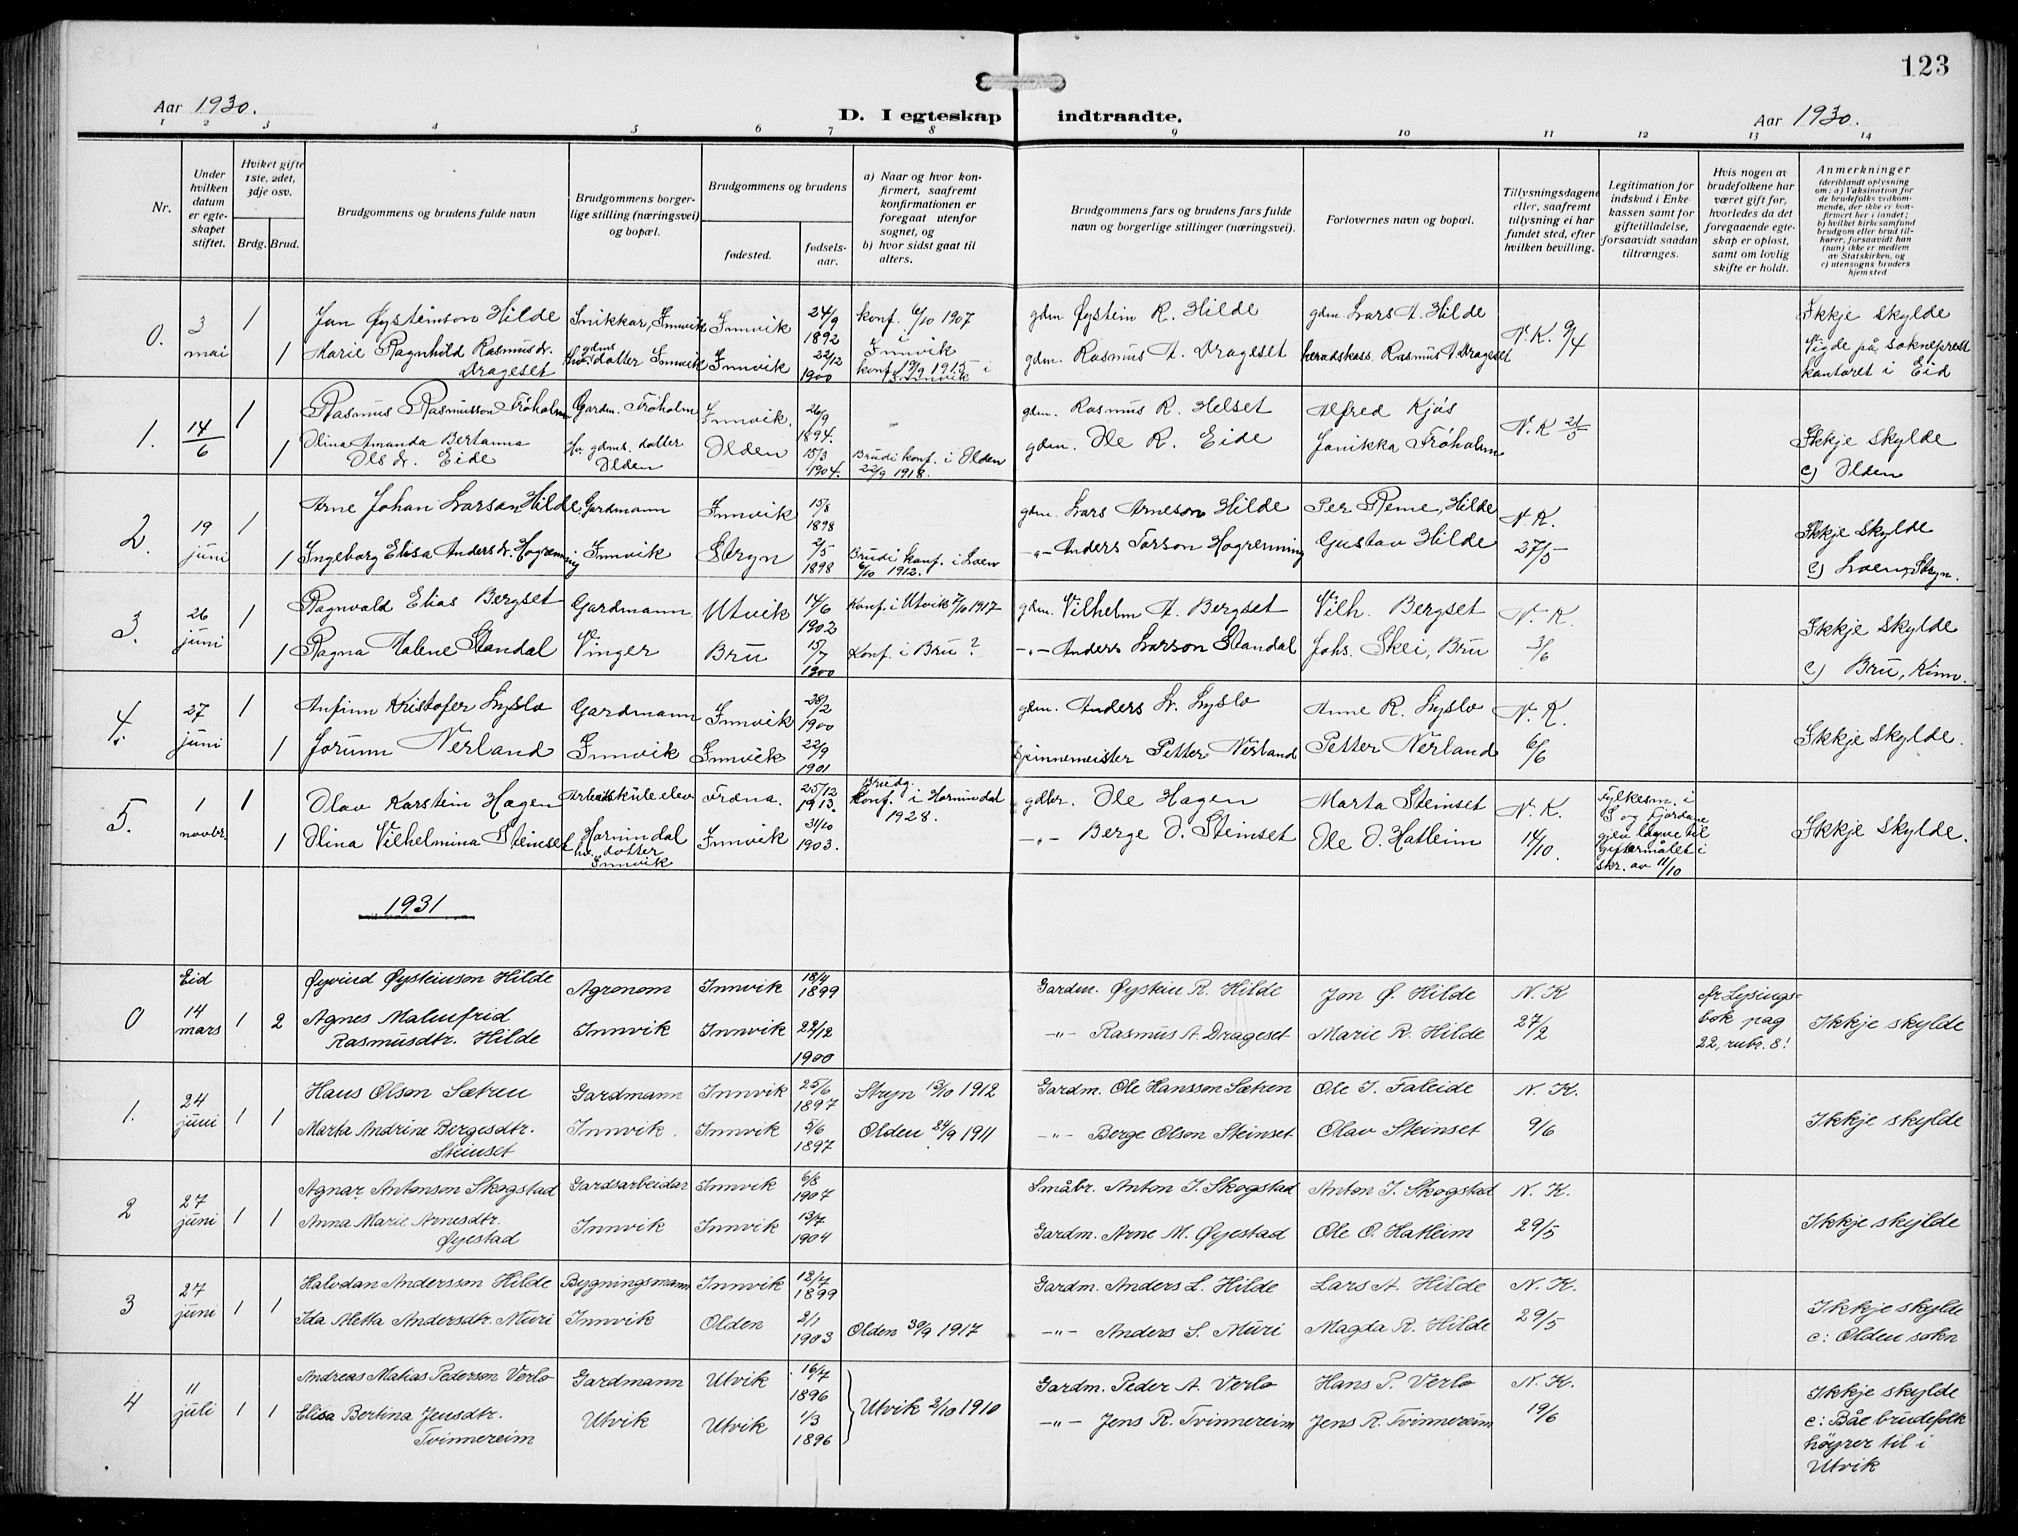 123
Aar 1930.
D. I egteskap indtraadte.
Aar 1930.
1 2 3 4 5 6 7 8 9 10 11 12 13 14
Nr.
Under hvilken datum er egteskapet stiftet.
Hvilket gifte 1ste, 2det, 3dje osv.
Brdg. Brud.
Brudgommens og brudens fulde navn
Brudgommens borgerlige stilling (næringsvei) og bopæl.
Brudgommens og brudens
fødested.
fødselsaar.
a) Naar og hvor konfirmert, saafremt konfirmationen er foregaat utenfor sognet, og
b) hvor sidst gaat til alters.
Brudgommens fars og brudens fars fulde navn og borgerlige stillinger (næringsvei).
Forlovernes navn og bopæl.
Tillysningsdagene eller, saafremt tillysning ei har fundet sted, efter hvilken bevilling.
Legitimation for indskud i Enkekassen samt for giftetilladelse, forsaavidt saadan tiltrænges.
Hvis nogen av brudefolkene har været gift før, hvorledes da det foregaaende egteskap er opløst, samt om lovlig skifte er holdt.
Anmerkninger
(deriblandt oplysning om: a) Vaksination for de brudefolks vedkommende, der ikke er konfirmert her i landet; b) hvilket kirkesamfund brudgom eller brud tilhører, forsaavidt han (hun) ikke er medlem av Statskirken, og c) utensogns bruders hjemsted
0. 3 mai 1 Jon Øysteinson Hilde Snikkar, Innvik Innvik 24/9 1892 konf. 6/10 1907 Innvik gdm Øystein R. Hilde gdm. Lars A. Hilde N.K. 9/4 Ikkje skylde
1 Marie Ragnhild Rasmusdr. Drageset gdms dotter Innvik Innvik 22/12 1900 konf. 19/9 1915 i Innvik gdm. Rasmus A. Drageset heradskass. Rasmus A Drageset Vigde på sokneprest kontoret i Eid
1. 14/6 1 Rasmus Rasmusson Frøholm Gardm. Frøholm Innvik. 26/9 1894. gdm. Rasmus R. Helset Alfred Kjøs N.K 21/5 Ikkje skylde
1 Olina Amanda Bertanna Ols dr. Eide Hv. gdms. dotter Olden Olden 15/3 1904. Brudi konf. i Olden 22/9 1918. gdm. Ole R. Eide Janikka Frøholm c) Olden
2. 19 juni 1 Arne Johan Larson Hilde Gardmann Innvik 15/8 1898 gdm. Lars Arneson Hilde Per Reme, Hilde N.K. 27/5 Ikkje skylde
1 Ingeborg Elisa Anders dr. Hogrenning Innvik Stryn 2/5 1898 Brudi konf. i Loen 6/10 1912. -"- Anders Larson Hogrenning Gustav Hilde c) Loen, Stryn.
3. 26 juni 1 Ragnvald Elias Bergset Gardmann Utvik 14/6 1902 Konf. i Utvik 7/10 1917 gdm. Vilhelm A. Bergset Vilh. Bergset N.K. 3/6 Ikkje skylde
1 Ragna Malene Standal Vinger Bru 15/7 1900 Konf. i Bru? -"- Anders Larson Standal Johs. Skei, Bru c) Bru, Kinn.
4. 27 juni 1 Anfinn Kristofer Lyslo Gardmann Innvik 28/2 1900 gdm. Anders L. Lyslo Anne R. Lyslo N.K. 6/6 Ikkje skylde.
1 Jorunn Nerland Innvik Innvik 22/9 1901 Spinnemeister Petter Nerland Petter Nerland
5. 1 novbr. 1 Olav Karstein Hagen Arbeidskule elev Fræna. 25/12 1913. Brudg. konf. i Hornindal 1928. gdbr. Ole Hagen Marta Steinset N.K. 14/10. Fylkesm. i S og Fjordane gjev løyve til giftermålet i skr. av 11/10 Ikkje skylde.
1 Olina Vilhelmina Steinset Hornindal hv. dotter Innvik Innvik 31/10 1903. -"- Berge O. Steinset Ole O. Hatleim
1931
0 Eid 14 mars 1 2 Øyvind Øysteinson Hilde Agronom Innvik 18/4 1899 Gardm. Øystein R. Hilde Jon Ø. Hilde N.K 27/2 cfr Lysingsbok pag 22, rubr. 8! Ikkje skylde
Agnes Malmfrid Rasmusdtr. Hilde Innvik Innvik 22/12 1900 -"- Rasmus A. Drageset Marie R. Hilde
1. 24 juni 1 1 Hans Olson Sætren Gardmann Innvik 25/6 1897 Stryn 13/10 1912 Gardm. Ole Hansson Sætren Ole I. Faleide N.K. 9/6 Ikkje skylde
Marta Andrine Bergesdtr. Steinset Innvik. Innvik 5/6 1897 Olden 24/9 1911 -"- Berge Olson Steinset Olav Steinset
2 27 juni 1 1 Agnar Antonson Skogstad Gardsarbeidar Innvik 6/8 1907 Småbr. Anton I. Skogstad Anton I. Skogstad N.K. 29/5 Ikkje skylde
Anna Marie Arnesdtr. Øyestad Innvik Innvik 13/7 1904 Gardm. Arne M. Øyestad Ole O. Hatleim
3 27 juni 1 1 Halvdan Andersson Hilde Bygningsmann Innvik 12/7 1899 Gardm. Anders L. Hilde Lars A. Hilde N.K. 29/5 Ikkje skylde
Ida Metta Andersdtr. Muri Innvik Olden 2/1 1903 Olden 30/9 1917 -"- Anders S. Muri Magda R. Hilde c: Olden sokn
4 11 juli 1 1 Andreas Matias Pederson Verlo Gardmann Utvik 16/7 1896 Utvik 2/10 1910 Gardm. Peder A. Verlo Hans P. Verlo N.K. 19/6 Ikkje skylde
Elisa Bertina Jensdtr. Tvinnereim Utvik Utvik 1/3 1896 -"- Jens R. Tvinnereim Jens R. Tvinnereim c: Båe brudefolk høyrer til i Utvik